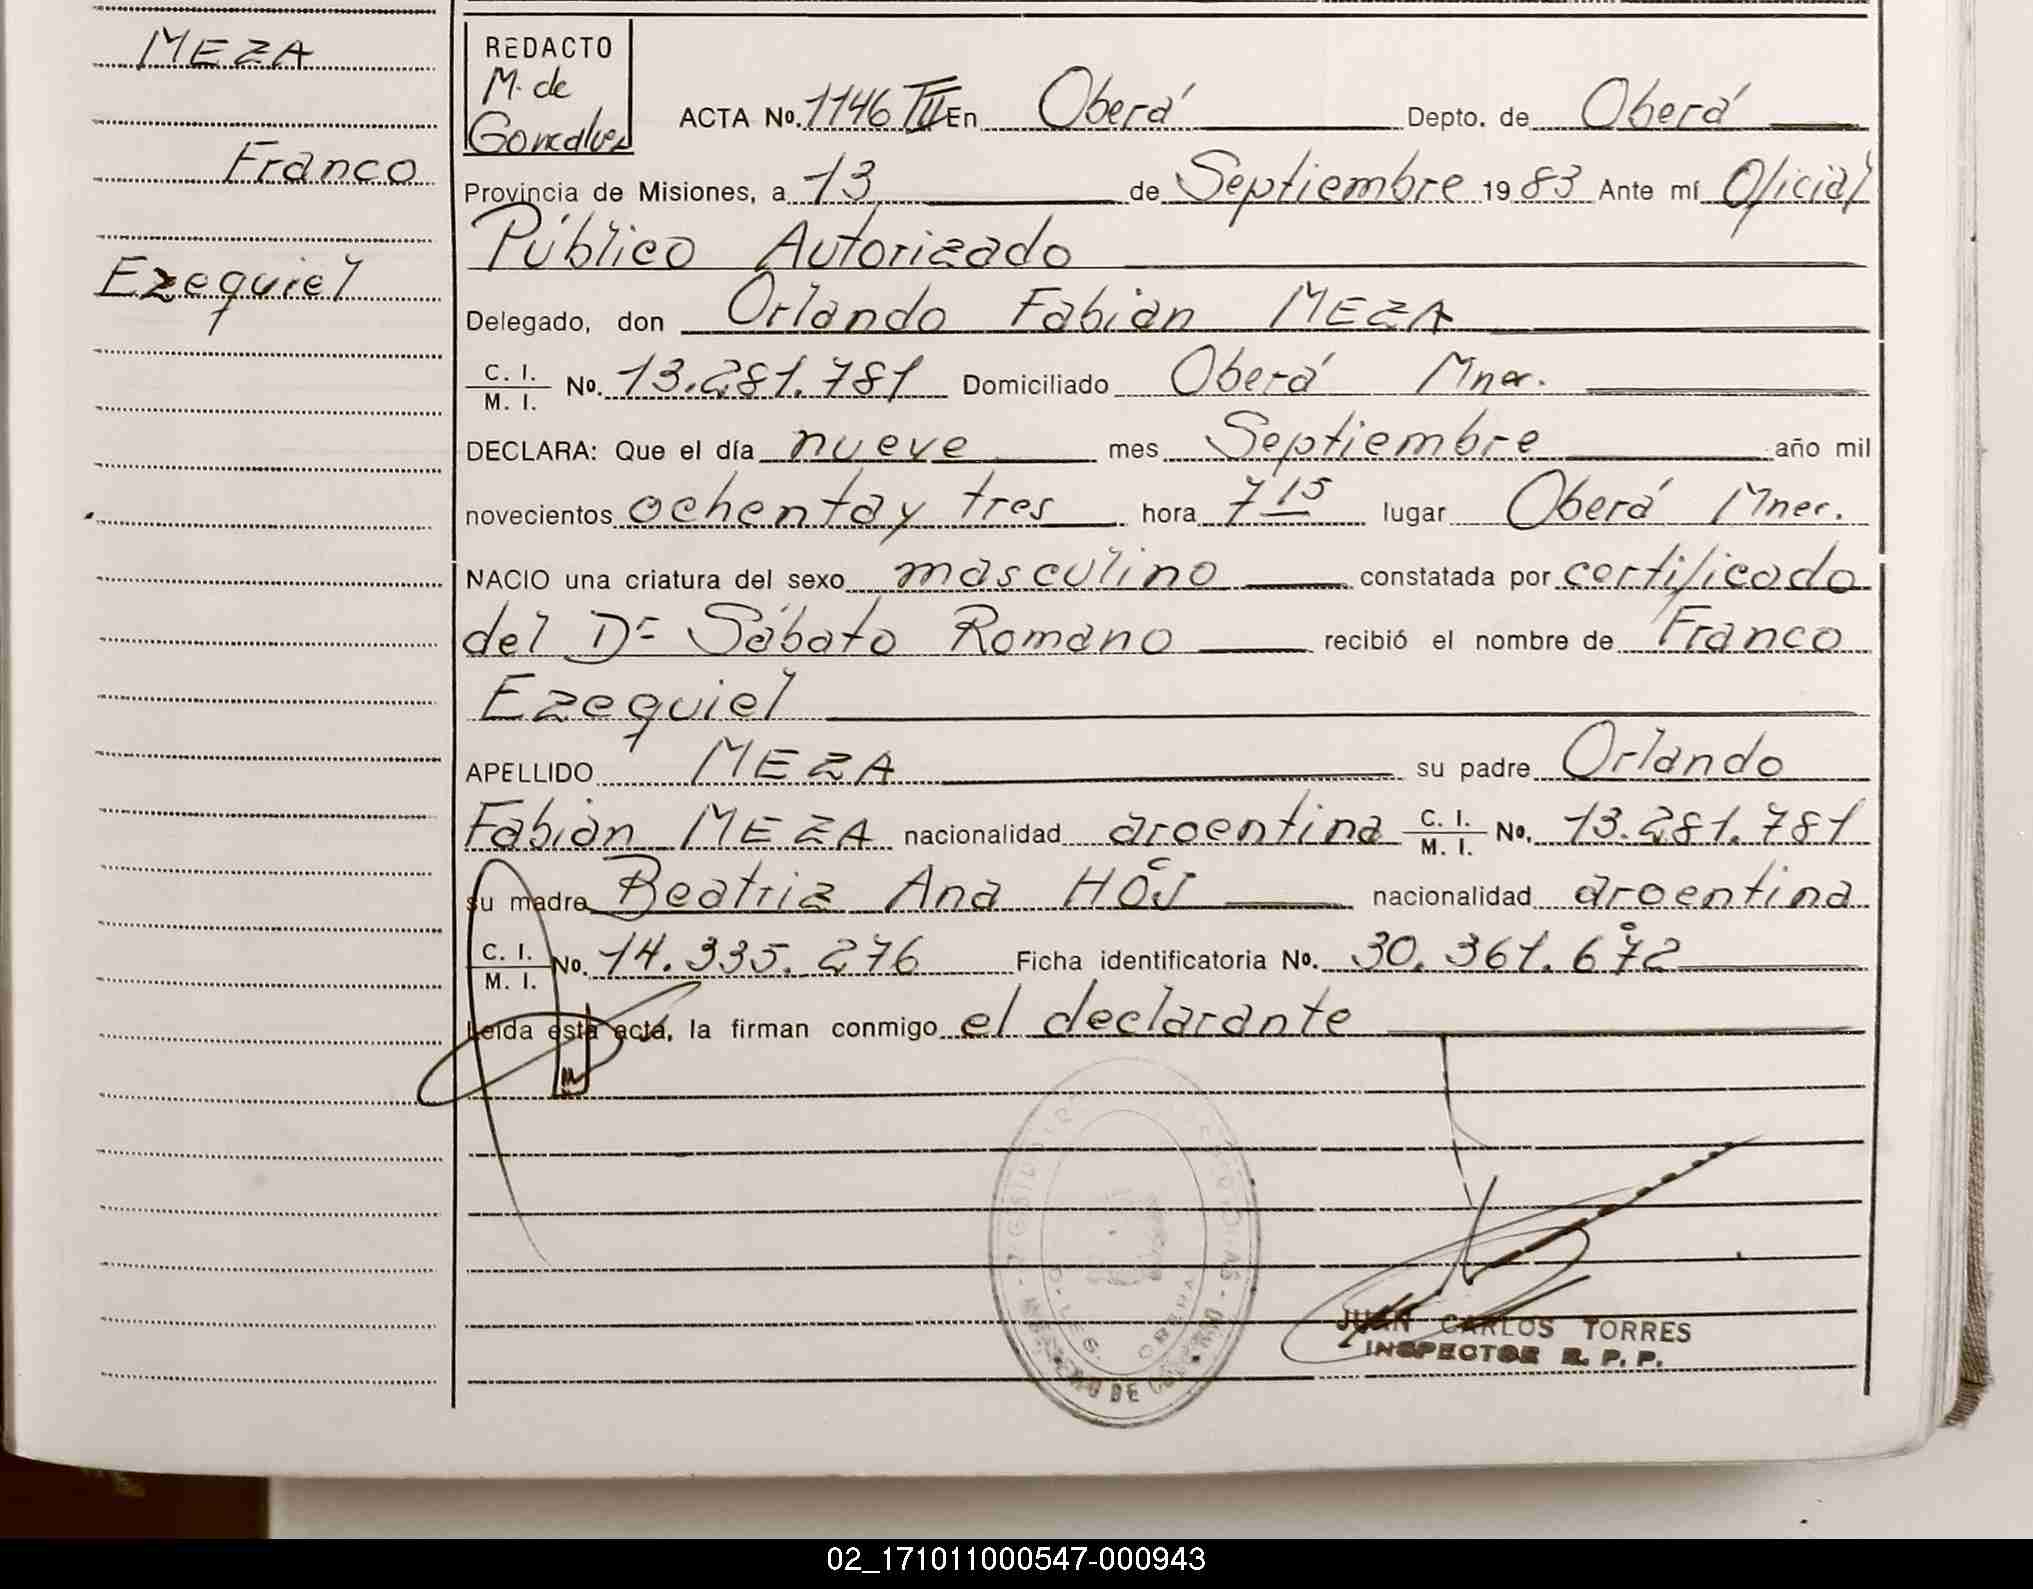 MEZA
Franco
Ezequiel
REDACTO
M. de
Goncalvez
ACTA Nº. 1146 TII En Oberá Depto. de Oberá
Provincia de Misiones, a 13 de Septiembre 1983 Ante mí Oficial
Público Autorizado
Delegado, don Orlando Fabián MEZA
C. I.
M. I. Nº. 13.281.781 Domiciliado Oberá Mnes.
DECLARA: Que el día nueve mes Septiembre año mil
novecientos ochenta y tres hora 7 15 lugar Oberá Mnes.
NACIO una criatura del sexo masculino constatada por certificado
del Dr Sábato Romano recibió el nombre de Franco
Ezequiel
APELLIDO MEZA su padre Orlando
Fabián MEZA nacionalidad argentina C. I. M. I. Nº. 13.281.781
su madre Beatriz Ana HOJ nacionalidad argentina
C. I.
M. I. Nº. 14.335.276 Ficha identificatoria Nº. 30.361.672
Leída esta acta, la firman conmigo el declarante
OBERA
JUAN CARLOS TORRES
INSPECTOR R. P. P.
02_171011000547-000943